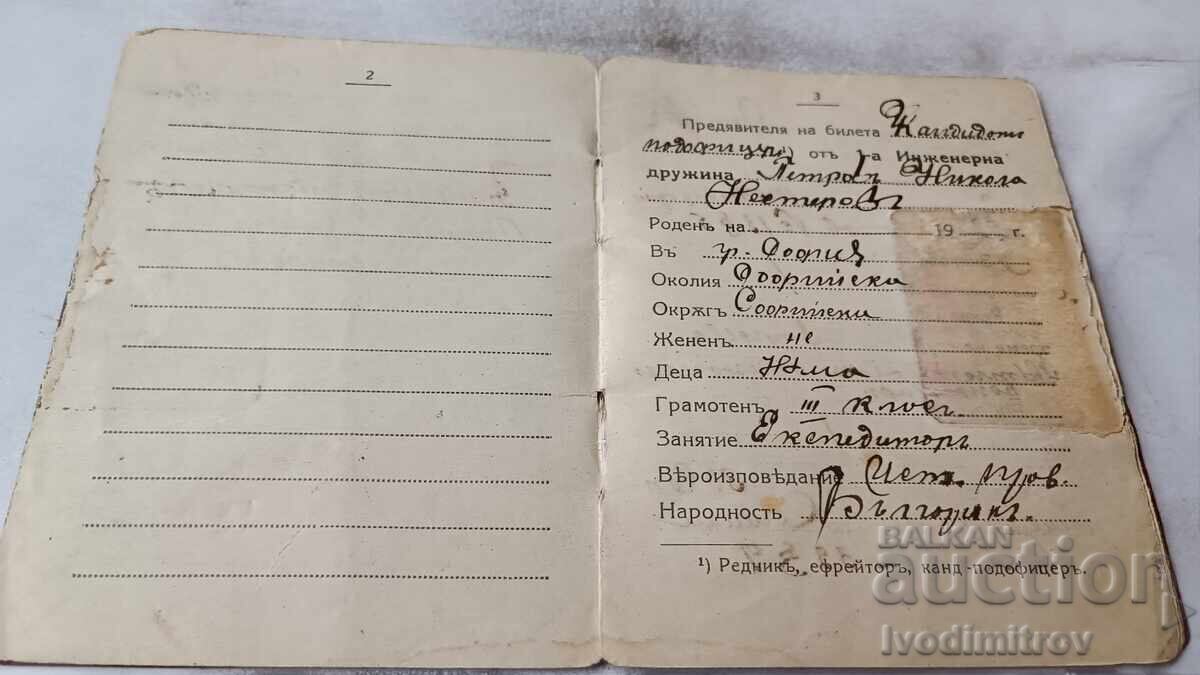 2
3
Предявителя на билета Кандидатъ
подофицеръ ¹) отъ та Инженерна
дружина Петръ Никола
Роденъ на 19 г.
Въ гр. София
Околия Софийска
Окрѫгъ Софийски
Жененъ не
Деца Няма
Грамотенъ III клас.
Занятие Експедиторъ
Вѣроизповѣдание Изт. прав.
Народность Българинъ.
¹) Редникъ, ефрейторъ, канд-подофицеръ.
BALKAN
auction
Ivodimitrov